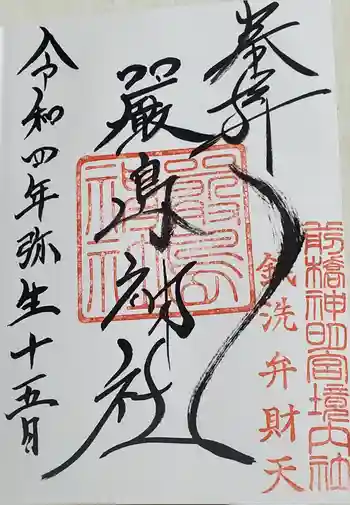 奉拝
前橋神明宮境内社
銭洗弁財天
厳島神社
令和四年弥生十五日